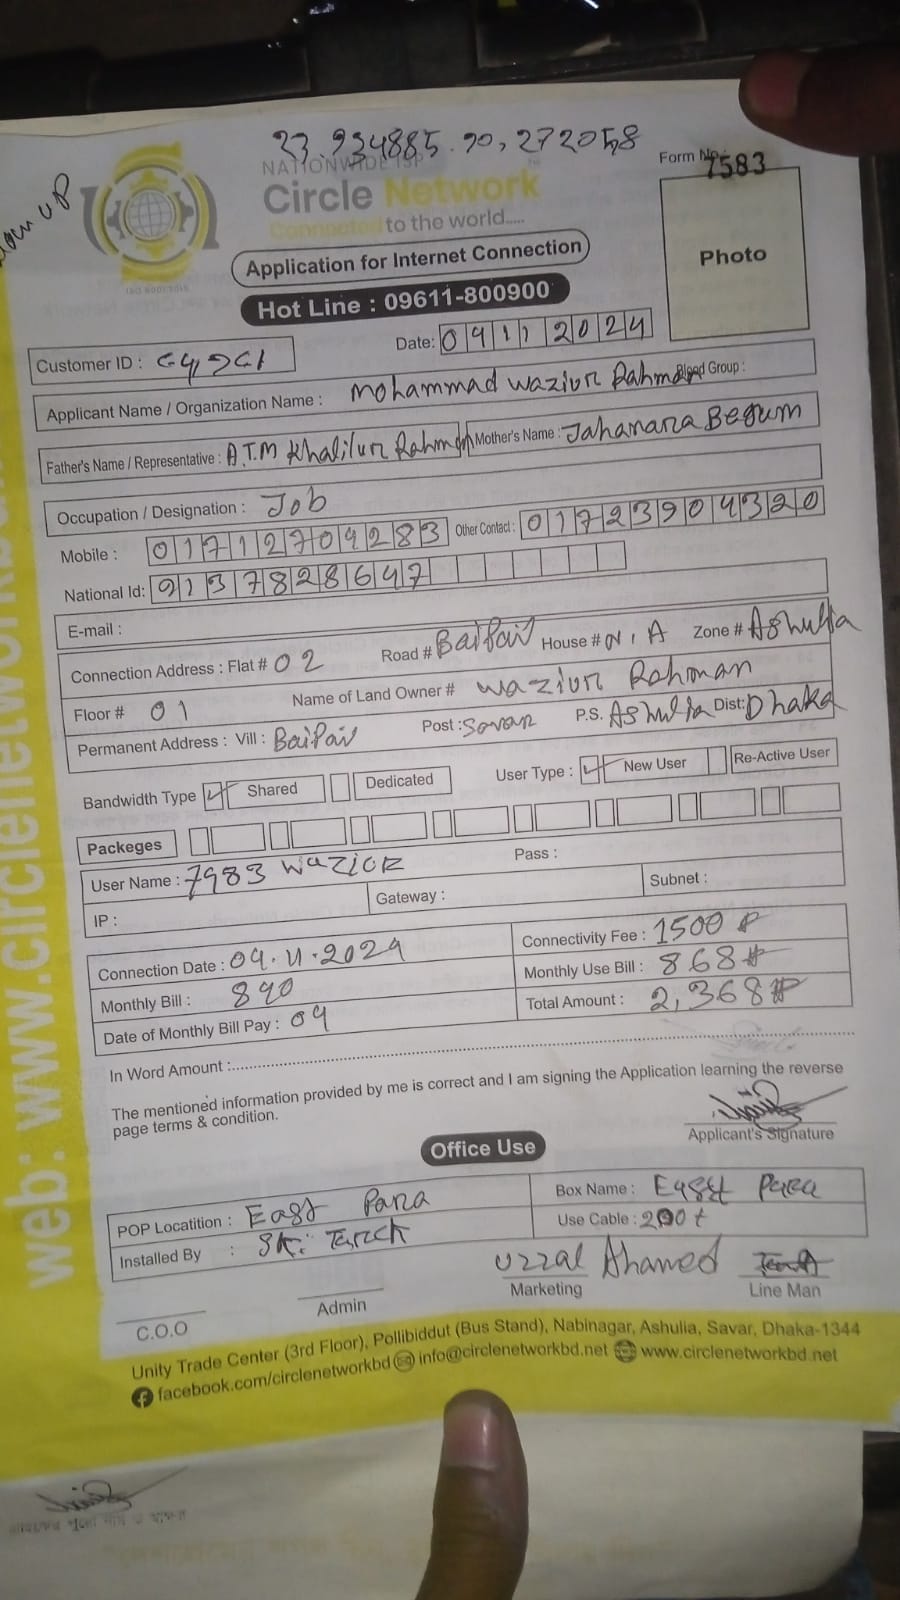 23.934885.90,272058
NATIONWIDE ISP
Circle Network
Connected to the world.....
Form No.: 7583
Photo
ISO 9001:2015
Application for Internet Connection
Hot Line : 09611-800900
Date: 09 11 2024
Customer ID :
Applicant Name / Organization Name : Mohammad Waziur Rahman Blood Group :
Father's Name / Representative : A.T.M Khalilur Rahman Mother's Name : Jahanara Begum
Occupation / Designation : Job
Mobile : 01712709283 Other Contact : 01723904320
National Id: 9137828647
E-mail :
Connection Address : Flat # 02 Road # Baipail House # N.A Zone # Ashulia
Floor # 01 Name of Land Owner # Waziur Rahman
Permanent Address : Vill : Baipail Post : Savar P.S. Ashulia Dist: Dhaka
Bandwidth Type Shared Dedicated User Type : New User Re-Active User
Packeges
User Name : 7983 Wazior Pass :
IP : Gateway : Subnet :
Connection Date : 09.11.2024 Connectivity Fee : 1500
Monthly Bill : 890 Monthly Use Bill : 868
Date of Monthly Bill Pay : 09 Total Amount : 2,368
In Word Amount :
The mentioned information provided by me is correct and I am signing the Application learning the reverse
page terms & condition.
Applicant's Signature
Office Use
POP Locatition : East Para Box Name : East Para
Installed By : SK. Tarek Use Cable : 200
Uzzal Ahamed
C.O.O Admin Marketing Line Man
Unity Trade Center (3rd Floor), Pollibiddut (Bus Stand), Nabinagar, Ashulia, Savar, Dhaka-1344
facebook.com/circlenetworkbd info@circlenetworkbd.net www.circlenetworkbd.net
web: www.circlenetworkbd